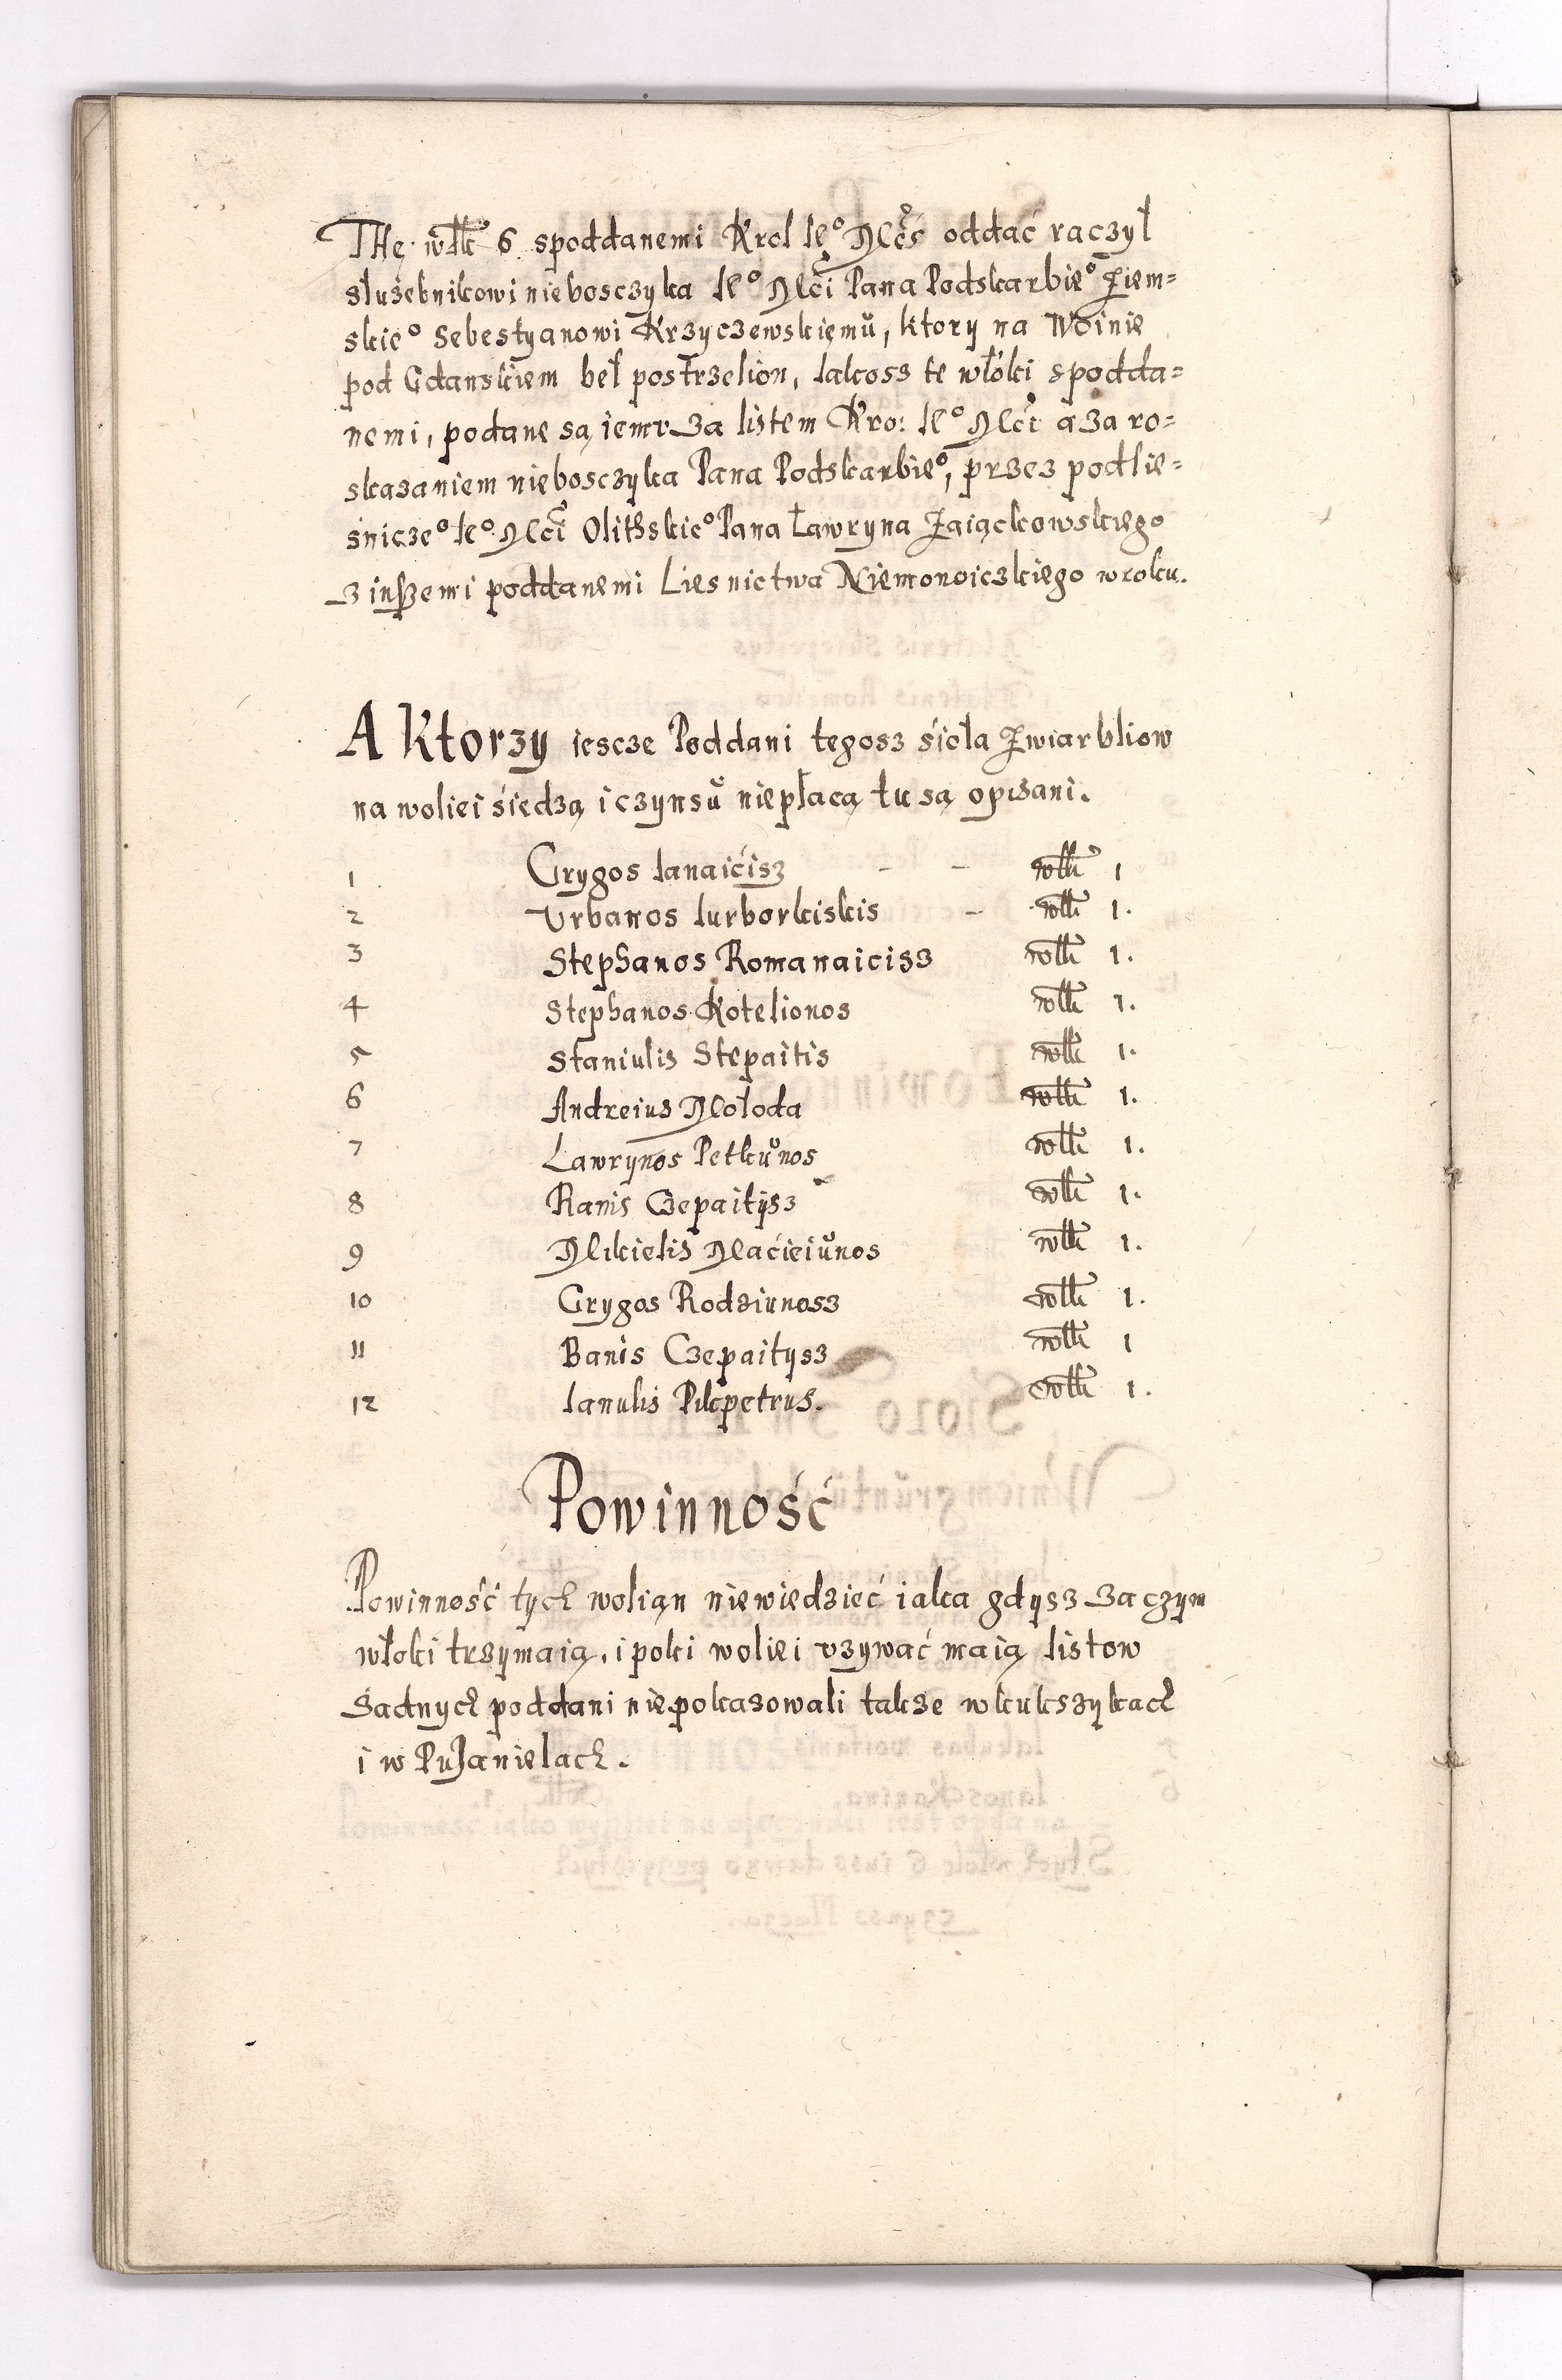 THę włk 6 spoddanemi Krol Ie° Mći oddać raczył
służebnikowi nieboszczyka Ie° Mći Pana Podskarbie° Ziem=
skie° Sebestyanowi Krzyczewskiemu, ktory na Woinie
pod Gdanskiem beł postrzelion, Iakosz te włoki spodda=
nemi, podane są iemu za listem Kro: Ie° Mći a za ro=
skazaniem nieboszczyka Pana Podskarbie°, przez podlie=
śnicze° Ie° Mći Olithskie° Pana Ławryna Zaiąckowskiego
z inszemi poddanemi Liesnictwa Niemonoiczkiego wroku.
A Ktorzy iescze Poddani tegosz sioła Zwiarbliow
na woliei siedzą i czynsu niepłacą tu są opisani.
1 Grygos Ianaicisz - - włk 1
2 Urbanos Iurborkiskis - włk 1.
3 Stephanos Romanaicisz włk 1.
4 Stephanos Kotelionos włk 1.
5 Staniulis Stepaitis włk 1.
6 Andreius Mołoda włk 1.
7 Lawrynos Petkunos włk 1.
8 Ranis Czepaitysz włk 1.
9 Mikielis Macieiunos włk 1.
10 Grygos Rodziunosz włk 1.
11 Banis Czepaitysz włk 1
12 Ianulis Pikpetrus. włk 1.
Powinność
Powinność tych wolian niewiedzieć iaka gdysz za czym
włoki trzymaią, i poki woliei uzywać maią listow
żadnych poddani niepokazowali takze wkukszykach
i w Puzanielach.